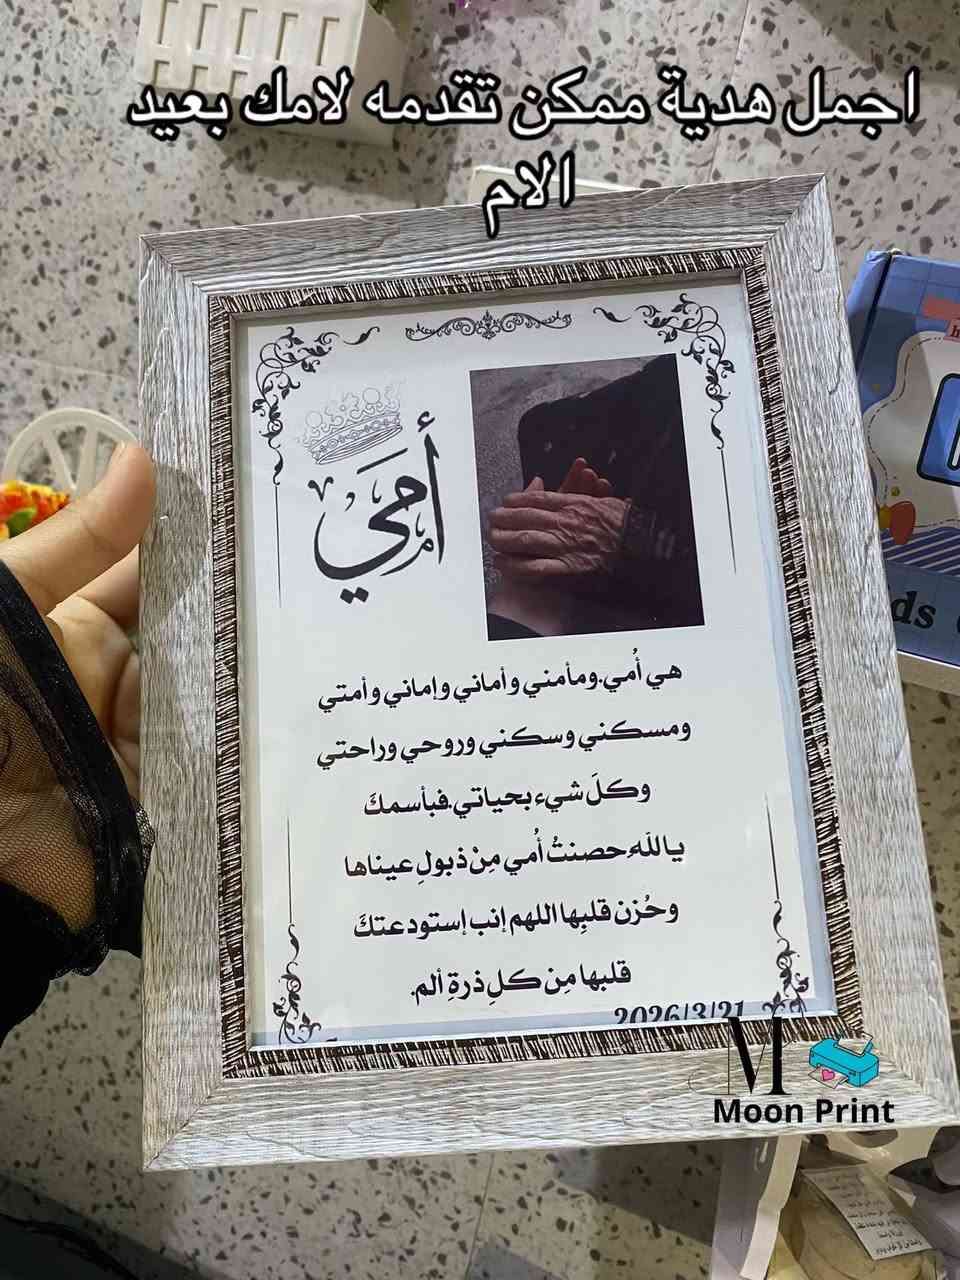 اجمل هدية ممكن تقدمه لامك بعيد
الام
أمي
هي أُمي.ومأمني وأماني وإماني وأمتي
ومسكني وسكني وروحي وراحتي
وكلَ شيء بحياتي.فبأسمكَ
يا اللَه حصنتُ أُمي مِنْ ذبولِ عيناها
وحُزن قلبِها اللهم إنب إستودعتكَ
قلبها مِن كلِ ذرةِ ألم.
2026/3/21
M
Moon Print
ds